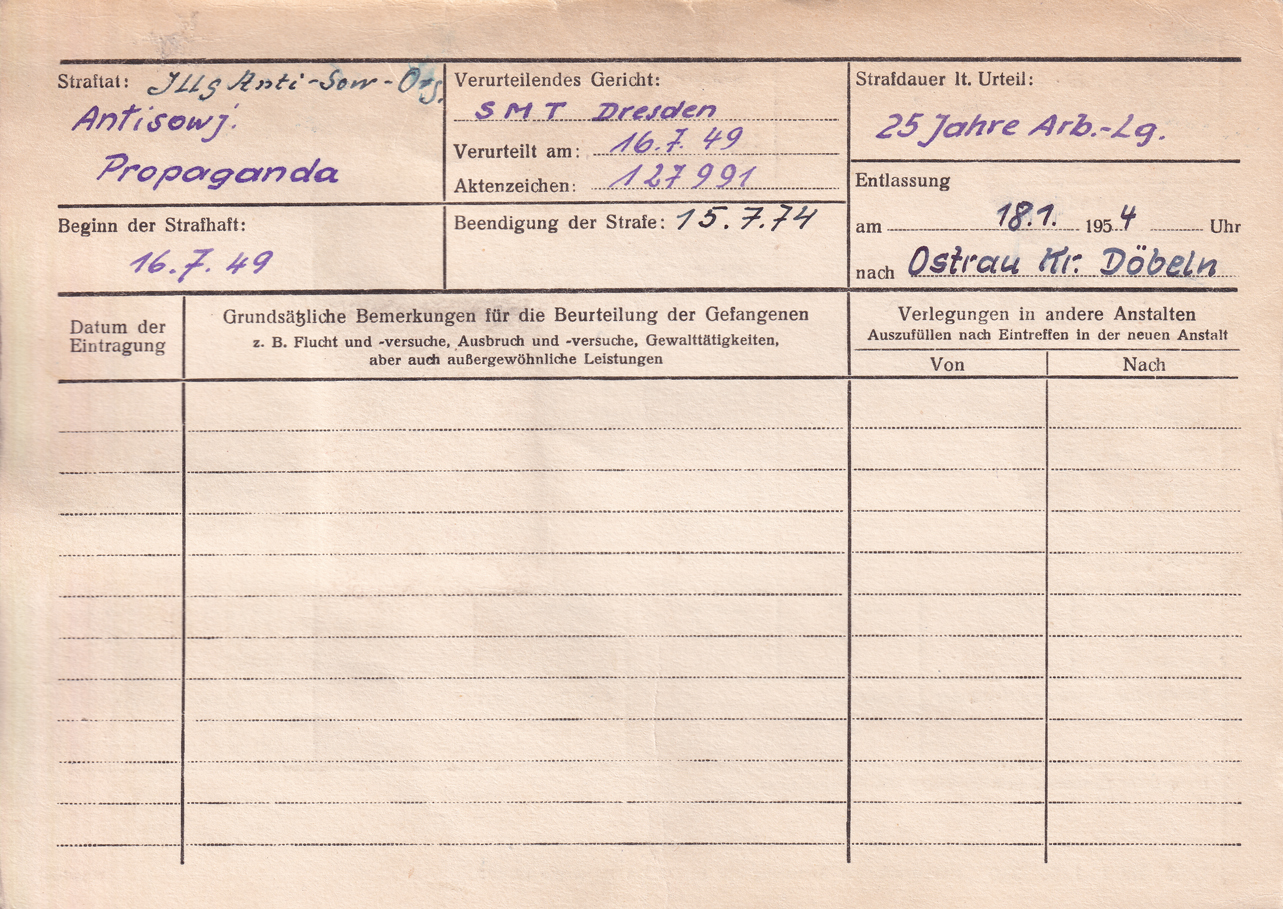 Straftat: Illg Anti-Sow-Org.
Antisowj.
Propaganda
Verurteilendes Gericht:
SMT Dresden
Verurteilt am: 16.7.49
Aktenzeichen: 127991
Strafdauer lt. Urteil:
25 Jahre Arb.-Lg.
Beginn der Strafhaft:
16.7.49
Beendigung der Strafe: 15.7.74
Entlassung
am 18.1. 1954 Uhr
nach Ostrau Kr. Döbeln
Datum der
Eintragung
Grundsätzliche Bemerkungen für die Beurteilung der Gefangenen
z. B. Flucht und -versuche, Ausbruch und -versuche, Gewalttätigkeiten,
aber auch außergewöhnliche Leistungen
Verlegungen in andere Anstalten
Auszufüllen nach Eintreffen in der neuen Anstalt
Von Nach